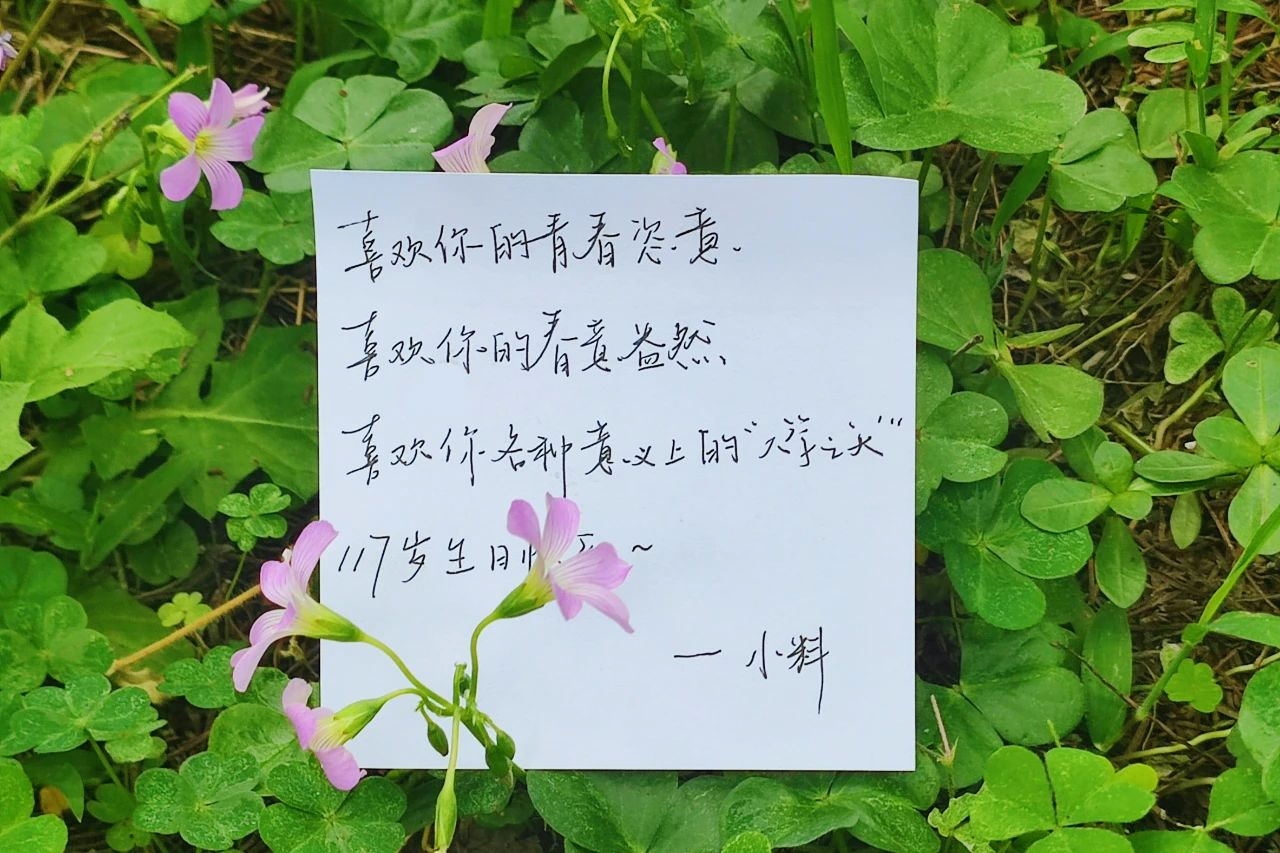 喜欢你的青春恣意、
喜欢你的春意盎然、
喜欢你各种意义上的“大学之大”
117岁生日快乐~
— 小料